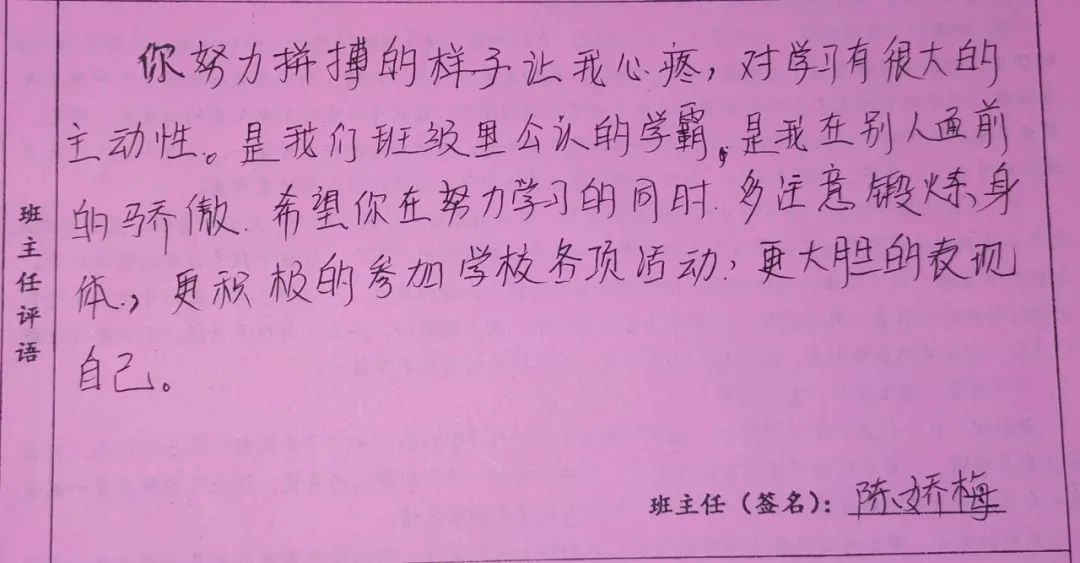 你努力拼搏的样子让我心疼，对学习有很大的
主动性。是我们班级里公认的学霸，是我在别人面前
的骄傲.希望你在努力学习的同时.多注意锻炼身
体，更积极的参加学校各项活动，更大胆的表现
自己。
班主任评语
班主任（签名）：陈娇梅